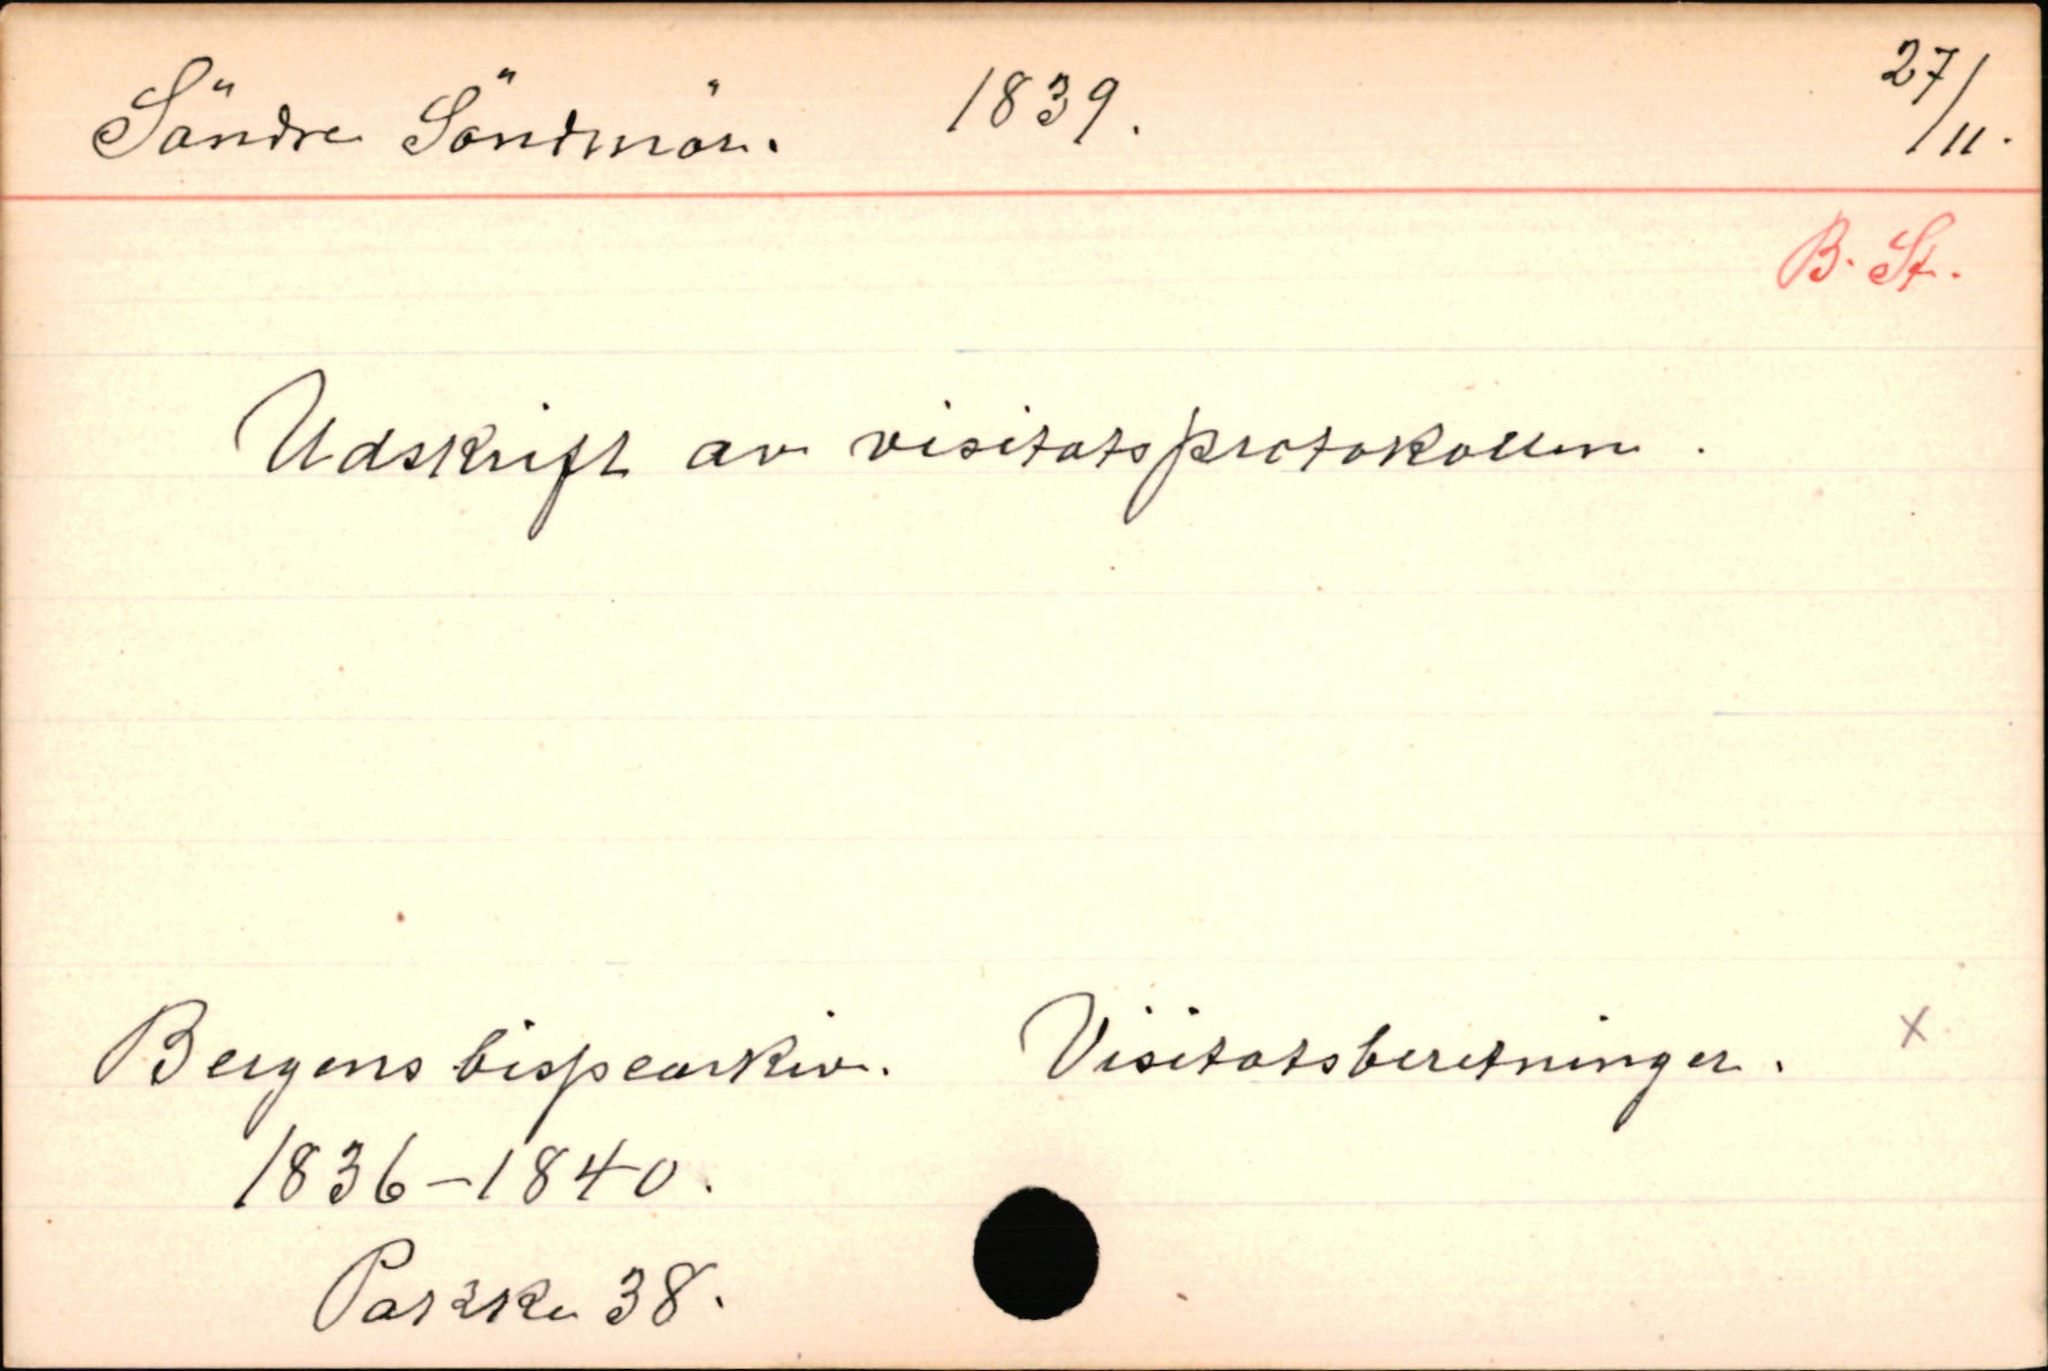 Söndre Söndmör. 1839. 27/11.
B. St.
Udskrift av visitatsprotokollen.
Bergens bispearkiv. Visitatsberetninger. x
1836-1840.
Pakke 38.